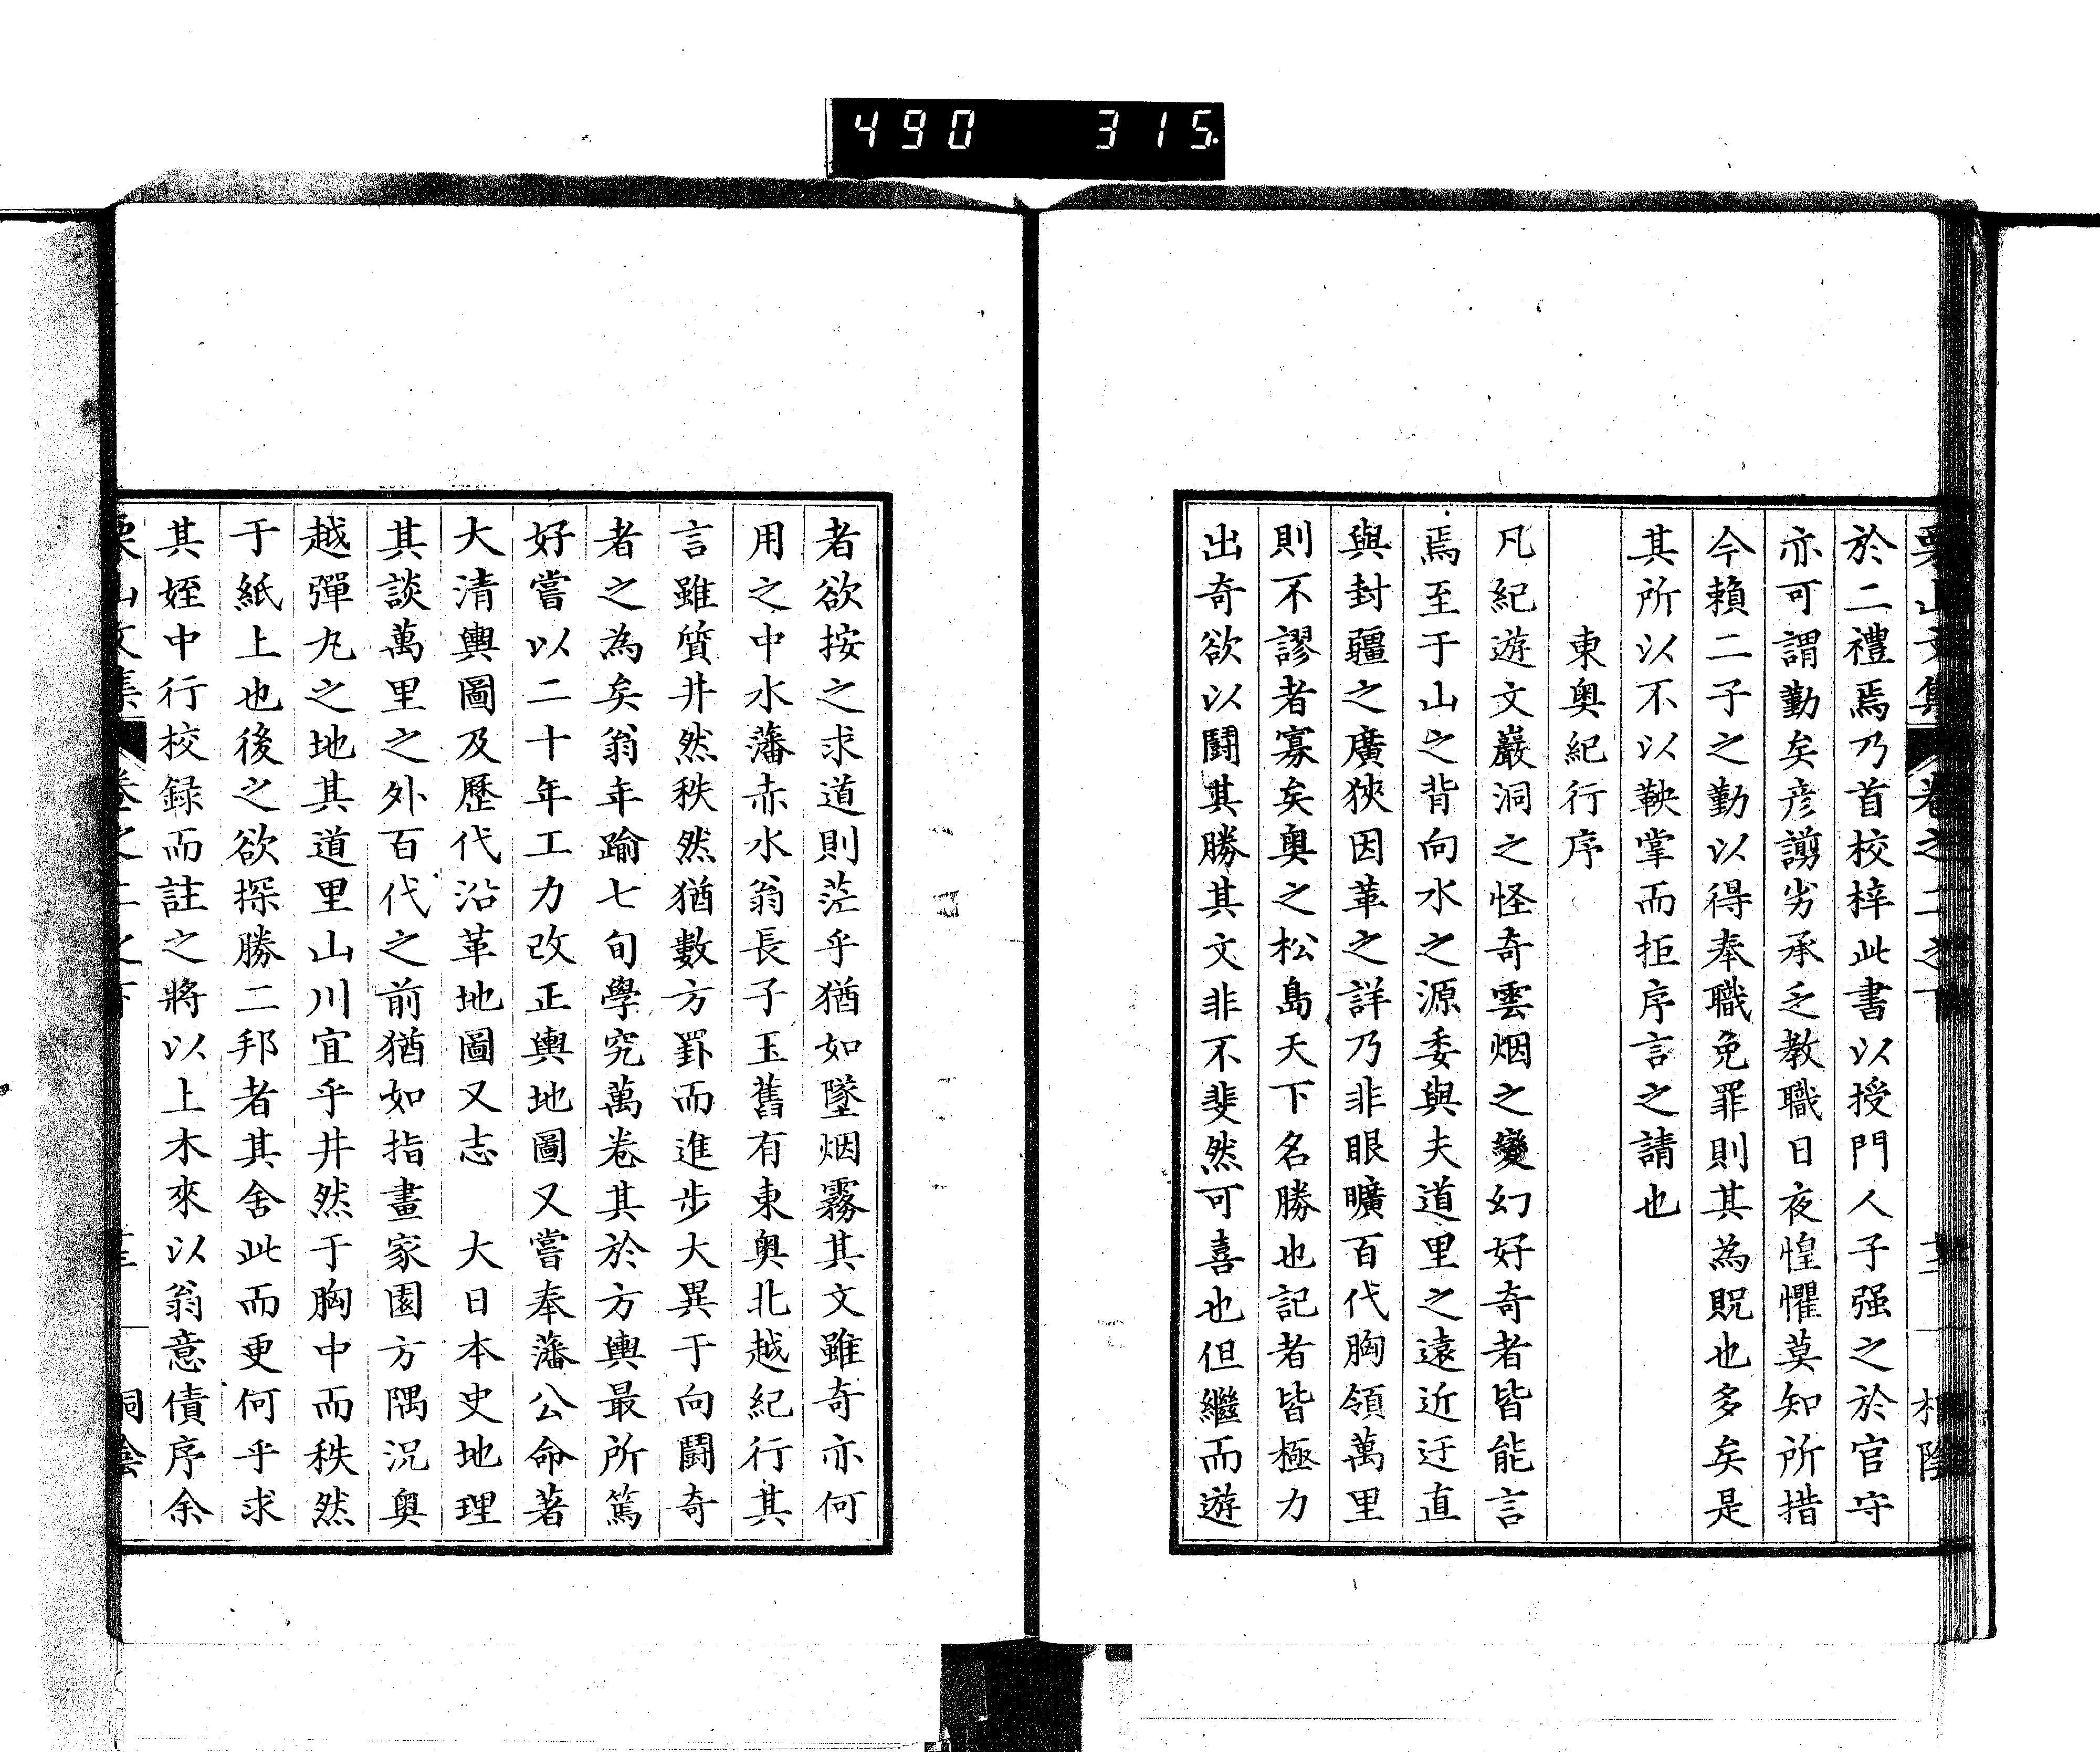 490 315
栗山文集 卷之二之下
於二禮焉乃首校梓此書以授門人子强之於官守
亦可謂勤矣彦謭劣承乏教職日夜惶懼莫知所措
今賴二子之勤以得奉職免罪則其為貺也多矣是
其所以不以鞅掌而拒序言之請也
東奥紀行序
凡紀遊文巖洞之怪奇雲烟之變幻好奇者皆能言
焉至于山之背向水之源委與夫道里之遠近迂直
與封疆之廣狹因革之詳乃非眼曠百代胸領萬里
則不謬者寡矣奧之松島天下名勝也記者皆極力
出奇欲以鬪其勝其文非不斐然可喜也但繼而遊
者欲按之求道則茫乎猶如墜烟霧其文雖奇亦何
用之中水藩赤水翁長子玉舊有東奥北越紀行其
言雖質井然秩然猶數方罫而進步大異于向鬪奇
者之為矣翁年踰七旬學究萬卷其於方輿最所篤
好嘗以二十年工力改正輿地圖又嘗奉藩公命著
大清輿圖及歷代沿革地圖又志 大日本史地理
其談萬里之外百代之前猶如指畫家園方隅況奥
越彈丸之地其道里山川宜乎井然于胸中而秩然
于紙上也後之欲探勝二邦者其舍此而更何乎求
其姪中行校録而註之將以上木來以翁意債序余
栗山文集 卷之二之下